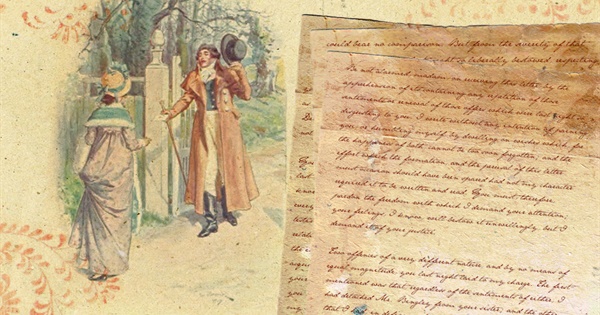 could bear no comparison. But from the severity of that
so liberally bestowed respecting
Be not alarmed madam on receiving this letter by the
apprehension of its containing any repetition of those
sentiments or renewal of those offers which were last night so
disgusting to you. I write without any intention of paining
you or humbling myself by dwelling on wishes which for
the happiness of both cannot be too soon forgotten, and the
effort which the formation, and the perusal of this letter
must occasion should have been spared had not my character
required it to be written and read. You must therefore
pardon the freedom with which I demand your attention;
your feelings, I know, will bestow it unwillingly but I
demand it of your justice.
Two offences of a very different nature and by no means of
equal magnitude, you last night laid to my charge. The first
mentioned was that regardless of the sentiments of either, I
had detached Mr. Bingley from your sister, and the other
that I had in